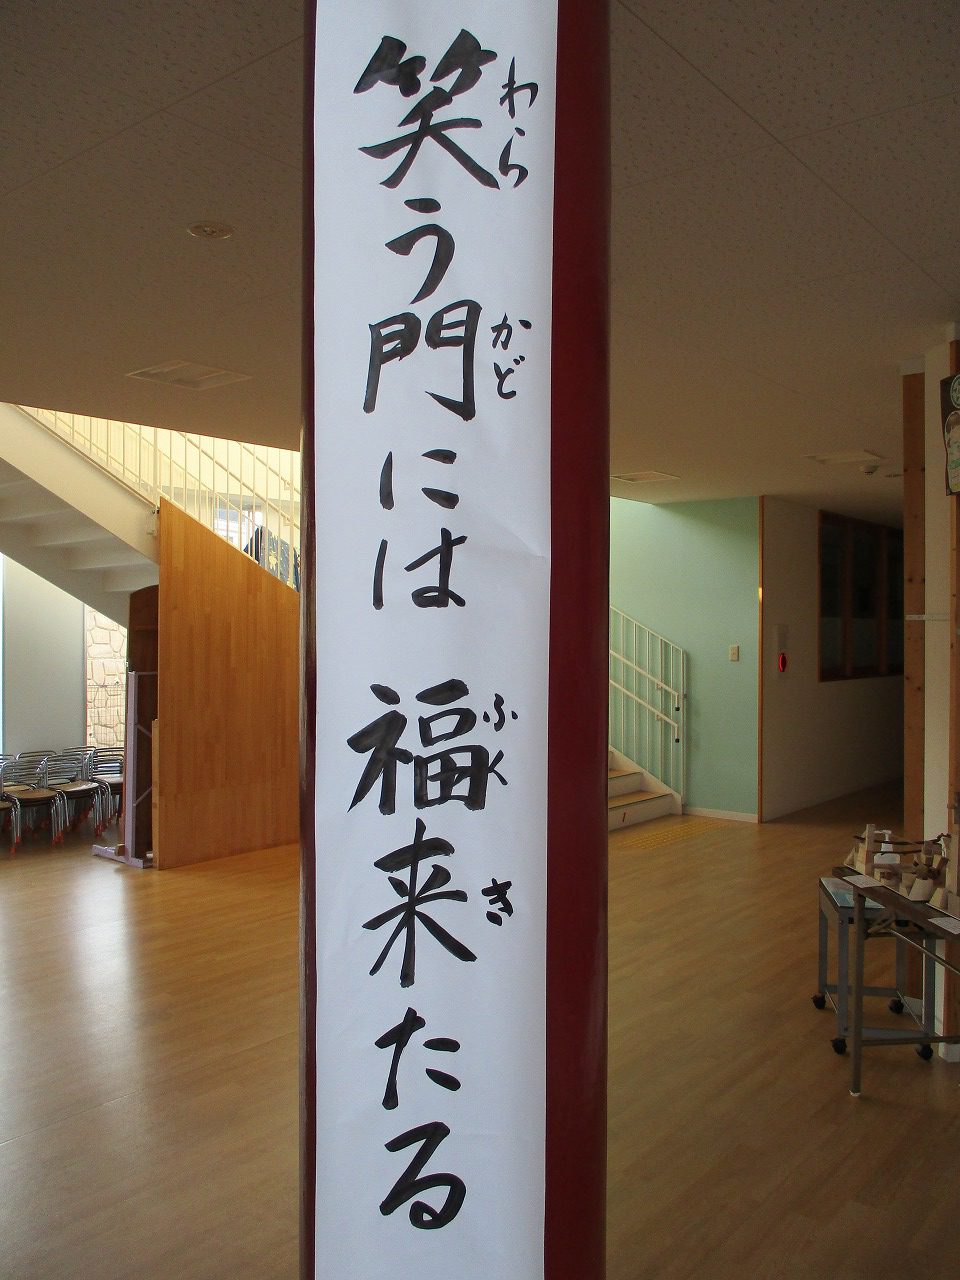 笑う門には 福来たる
わら
かど
ふく
き